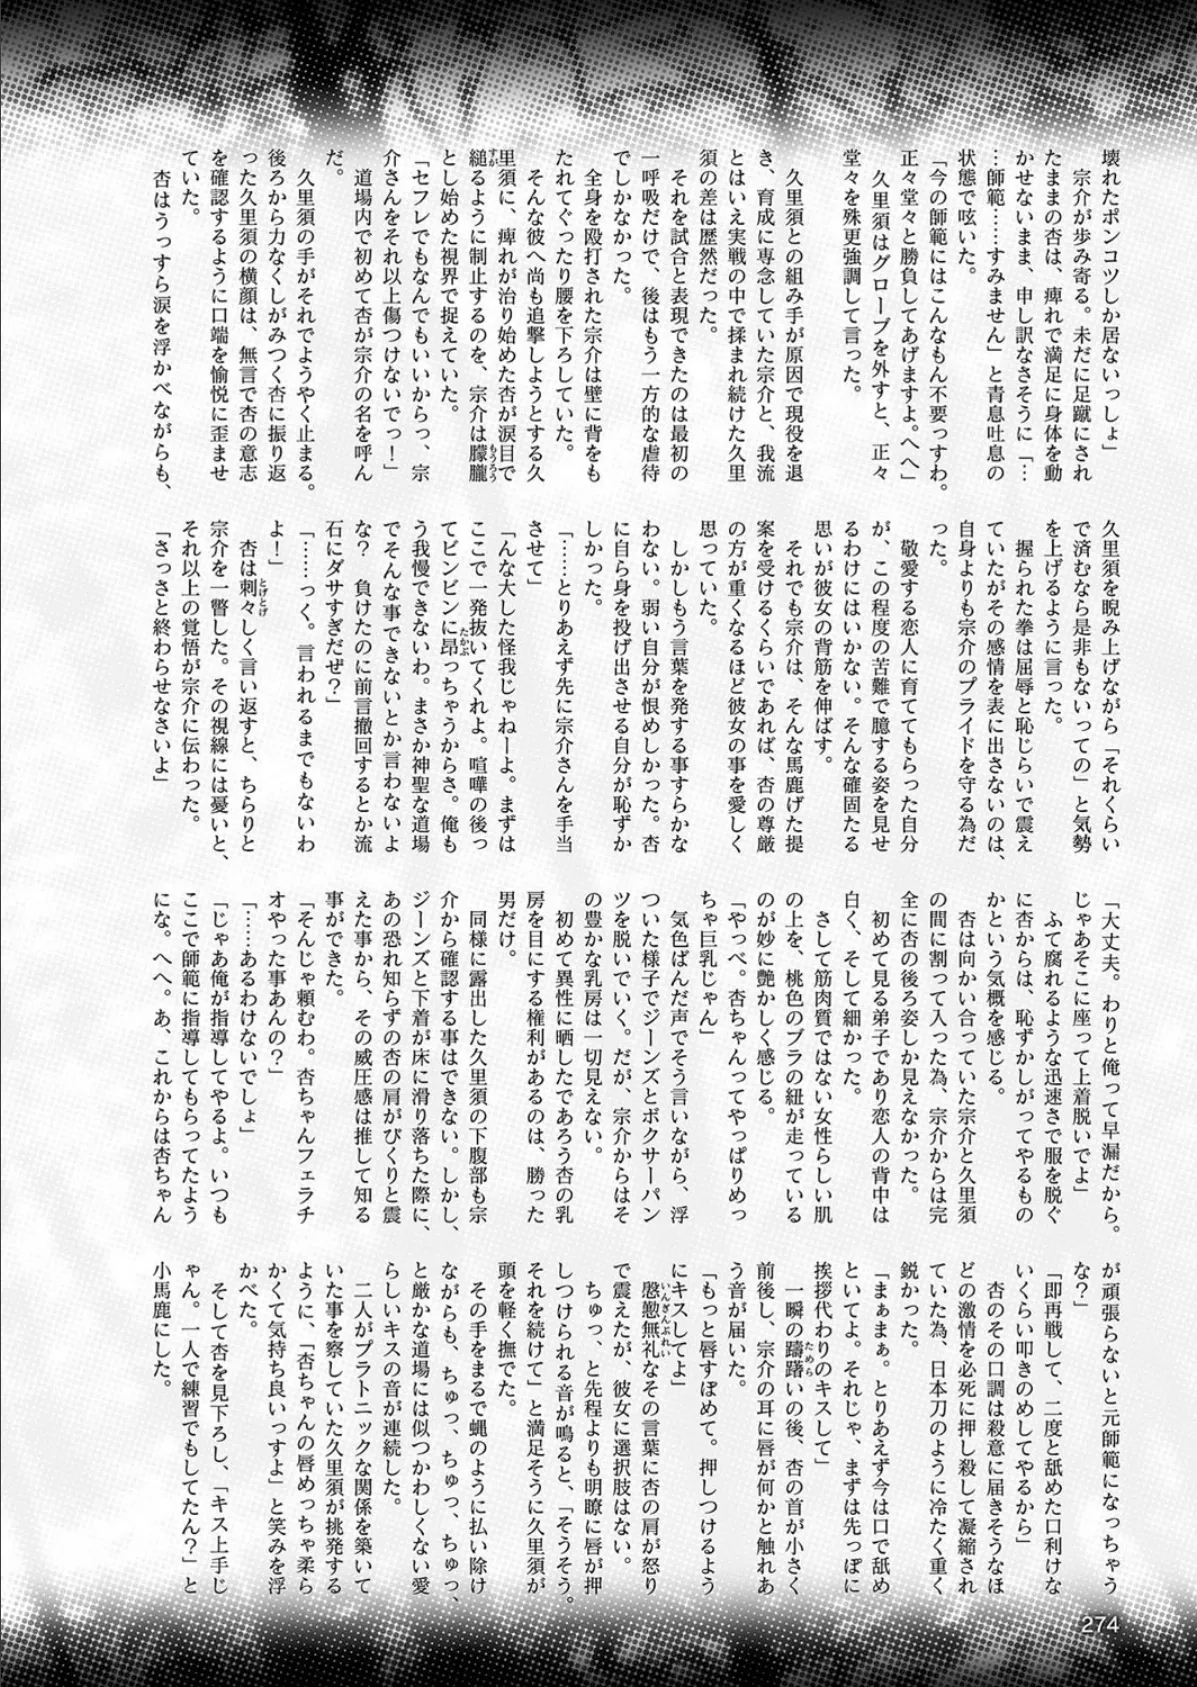 壊れたポンコツしか居ないいっしょ」
　宗介が歩み寄る。未だに足蹴にされ
たままの杏は、痺れで満足に身体を動
かせないまま、申し訳なさそうに「…
…師範……すみません」と青息吐息の
状態で呟いた。
「今の師範にはこんなもん不要っすわ。
正々堂々と勝負してあげますよ。へへ」
　久里須はグローブを外すと、正々
堂々を殊更強調して言った。
　久里須との組み手が原因で現役を退
き、育成に専念していた宗介と、我流
とはいえ実戦の中で揉まれ続けた久里
須の差は歴然だった。
　それを試合と表現できたのは最初の
一呼吸だけで、後はもう一方的な虐待
でしかなかった。
　全身を殴打された宗介は壁に背をも
たれてぐったり腰を下ろしていた。
　そんな彼へ尚も追撃しようとする久
里須に、痺れが治り始めた杏が涙目で
縋るように制止するのを、宗介は朦朧
とし始めた視界で捉えていた。
「セフレでもなんでもいいからっ、宗
介さんをそれ以上傷つけないでっ！」
　道場内で初めて杏が宗介の名を呼ん
だ。
　久里須の手がそれでようやく止まる。
後ろから力なくしがみつく杏に振り返
った久里須の横顔は、無言で杏の意志
を確認するように口端を愉悦に歪ませ
ていた。
　杏はうっすら涙を浮かべながらも、
久里須を睨み上げながら「それくらい
で済むなら是非もないっての」と気勢
を上げるように言った。
　握られた拳は屈辱と恥じらいで震え
ていたがその感情を表に出さないのは、
自身よりも宗介のプライドを守る為だ
った。
　敬愛する恋人に育ててもらった自分
が、この程度の苦難で臆する姿を見せ
るわけにはいかない。そんな確固たる
思いが彼女の背筋を伸ばす。
　それでも宗介は、そんな馬鹿げた提
案を受けるくらいであれば、杏の尊厳
の方が重くなるほど彼女の事を愛しく
思っていた。
　しかしもう言葉を発する事すらかな
わない。弱い自分が恨めしかった。杏
に自ら身を投げ出させる自分が恥ずか
しかった。
「……とりあえず先に宗介さんを手当
させて」
「んな大した怪我じゃねーよ。まずは
ここで一発抜いてくれよ。喧嘩の後っ
てビンビンに昂っちゃうからさ。俺も
う我慢できないわ。まさか神聖な道場
でそんな事できないとか言わないよ
な？　負けたのに前言撤回するとか流
石にダサすぎだぜ？」
「……っく。言われるまでもないわ
よ！」
　杏は刺々しく言い返すと、ちらりと
宗介を一瞥した。その視線には憂いと、
それ以上の覚悟が宗介に伝わった。
「さっさと終わらせなさいよ」
「大丈夫。わりと俺って早漏だから。
じゃあそこに座って上着脱いでよ」
　ふて腐れるような迅速さで服を脱ぐ
に杏からは、恥ずかしがってやるもの
かという気概を感じる。
　杏は向かい合っていた宗介と久里須
の間に割って入った為、宗介からは完
全に杏の後ろ姿しか見えなかった。
　初めて見る弟子であり恋人の背中は
白く、そして細かった。
　さして筋肉質ではない女性らしい肌
の上を、桃色のブラの紐が走っている
のが妙に艶かしく感じる。
「やっべ。杏ちゃんってやっぱりめっ
ちゃ巨乳じゃん」
　気色ばんだ声でそう言いながら、浮
ついた様子でジーンズとボクサーパン
ツを脱いでいく。だが、宗介からはそ
の豊かな乳房は一切見えない。
　初めて異性に晒したであろう杏の乳
房を目にする権利があるのは、勝った
男だけ。
　同様に露出した久里須の下腹部も宗
介から確認する事はできない。しかし、
ジーンズと下着が床に滑り落ちた際に、
あの恐れ知らずの杏の肩がびくりと震
えた事から、その威圧感は推して知る
事ができた。
「そんじゃ頼むわ。杏ちゃんフェラチ
オやった事あんの？」
「……あるわけないでしょ」
「じゃあ俺が指導してやるよ。いつも
ここで師範に指導してもらってたよう
にな。へへ。あ、これからは杏ちゃん
が頑張らないと元師範になっちゃう
な？」
「即再戦して、二度と舐めた口利けな
いくらい叩きのめしてやるから」
　杏のその口調は殺意に届きそうなほ
どの激情を必死に押し殺して凝縮され
ていた為、日本刀のように冷たく重く
鋭かった。
「まぁまぁ。とりあえず今は口で舐め
といてよ。それじゃ、まずは先っぽに
挨拶代わりのキスして」
　一瞬の躊躇いの後、杏の首が小さく
前後し、宗介の耳に唇が何かと触れあ
う音が届いた。
「もっと唇すぼめて。押しつけるよう
にキスしてよ」
　慇懃無礼なその言葉に杏の肩が怒り
で震えたが、彼女に選択肢はない。
　ちゅっ、と先程よりも明瞭に唇が押
しつけられる音が鳴ると、「そうそう。
それを続けて」と満足そうに久里須が
頭を軽く撫でた。
　その手をまるで蝿のように払い除け
ながらも、ちゅっ、ちゅっ、ちゅっ、
と厳かな道場には似つかわしくない愛
らしいキスの音が連続した。
　二人がプラトニックな関係を築いて
いた事を察していた久里須が挑発する
ように、「杏ちゃんの唇めっちゃ柔ら
かくて気持ち良いっすよ」と笑みを浮
かべた。
　そして杏を見下ろし、「キス上手じ
ゃん。一人で練習でもしてたん？」と
小馬鹿にした。
274